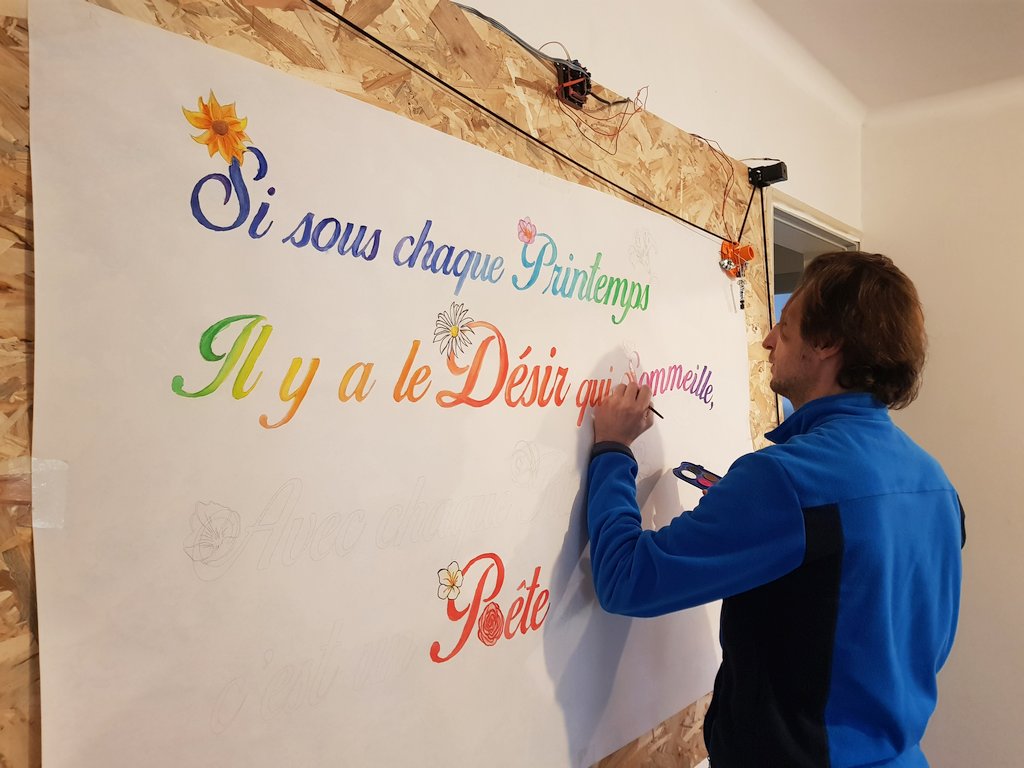 Si sous chaque Printemps
Il y a le Désir qui Sommeille,
Avec chaque
c'est un Poéte